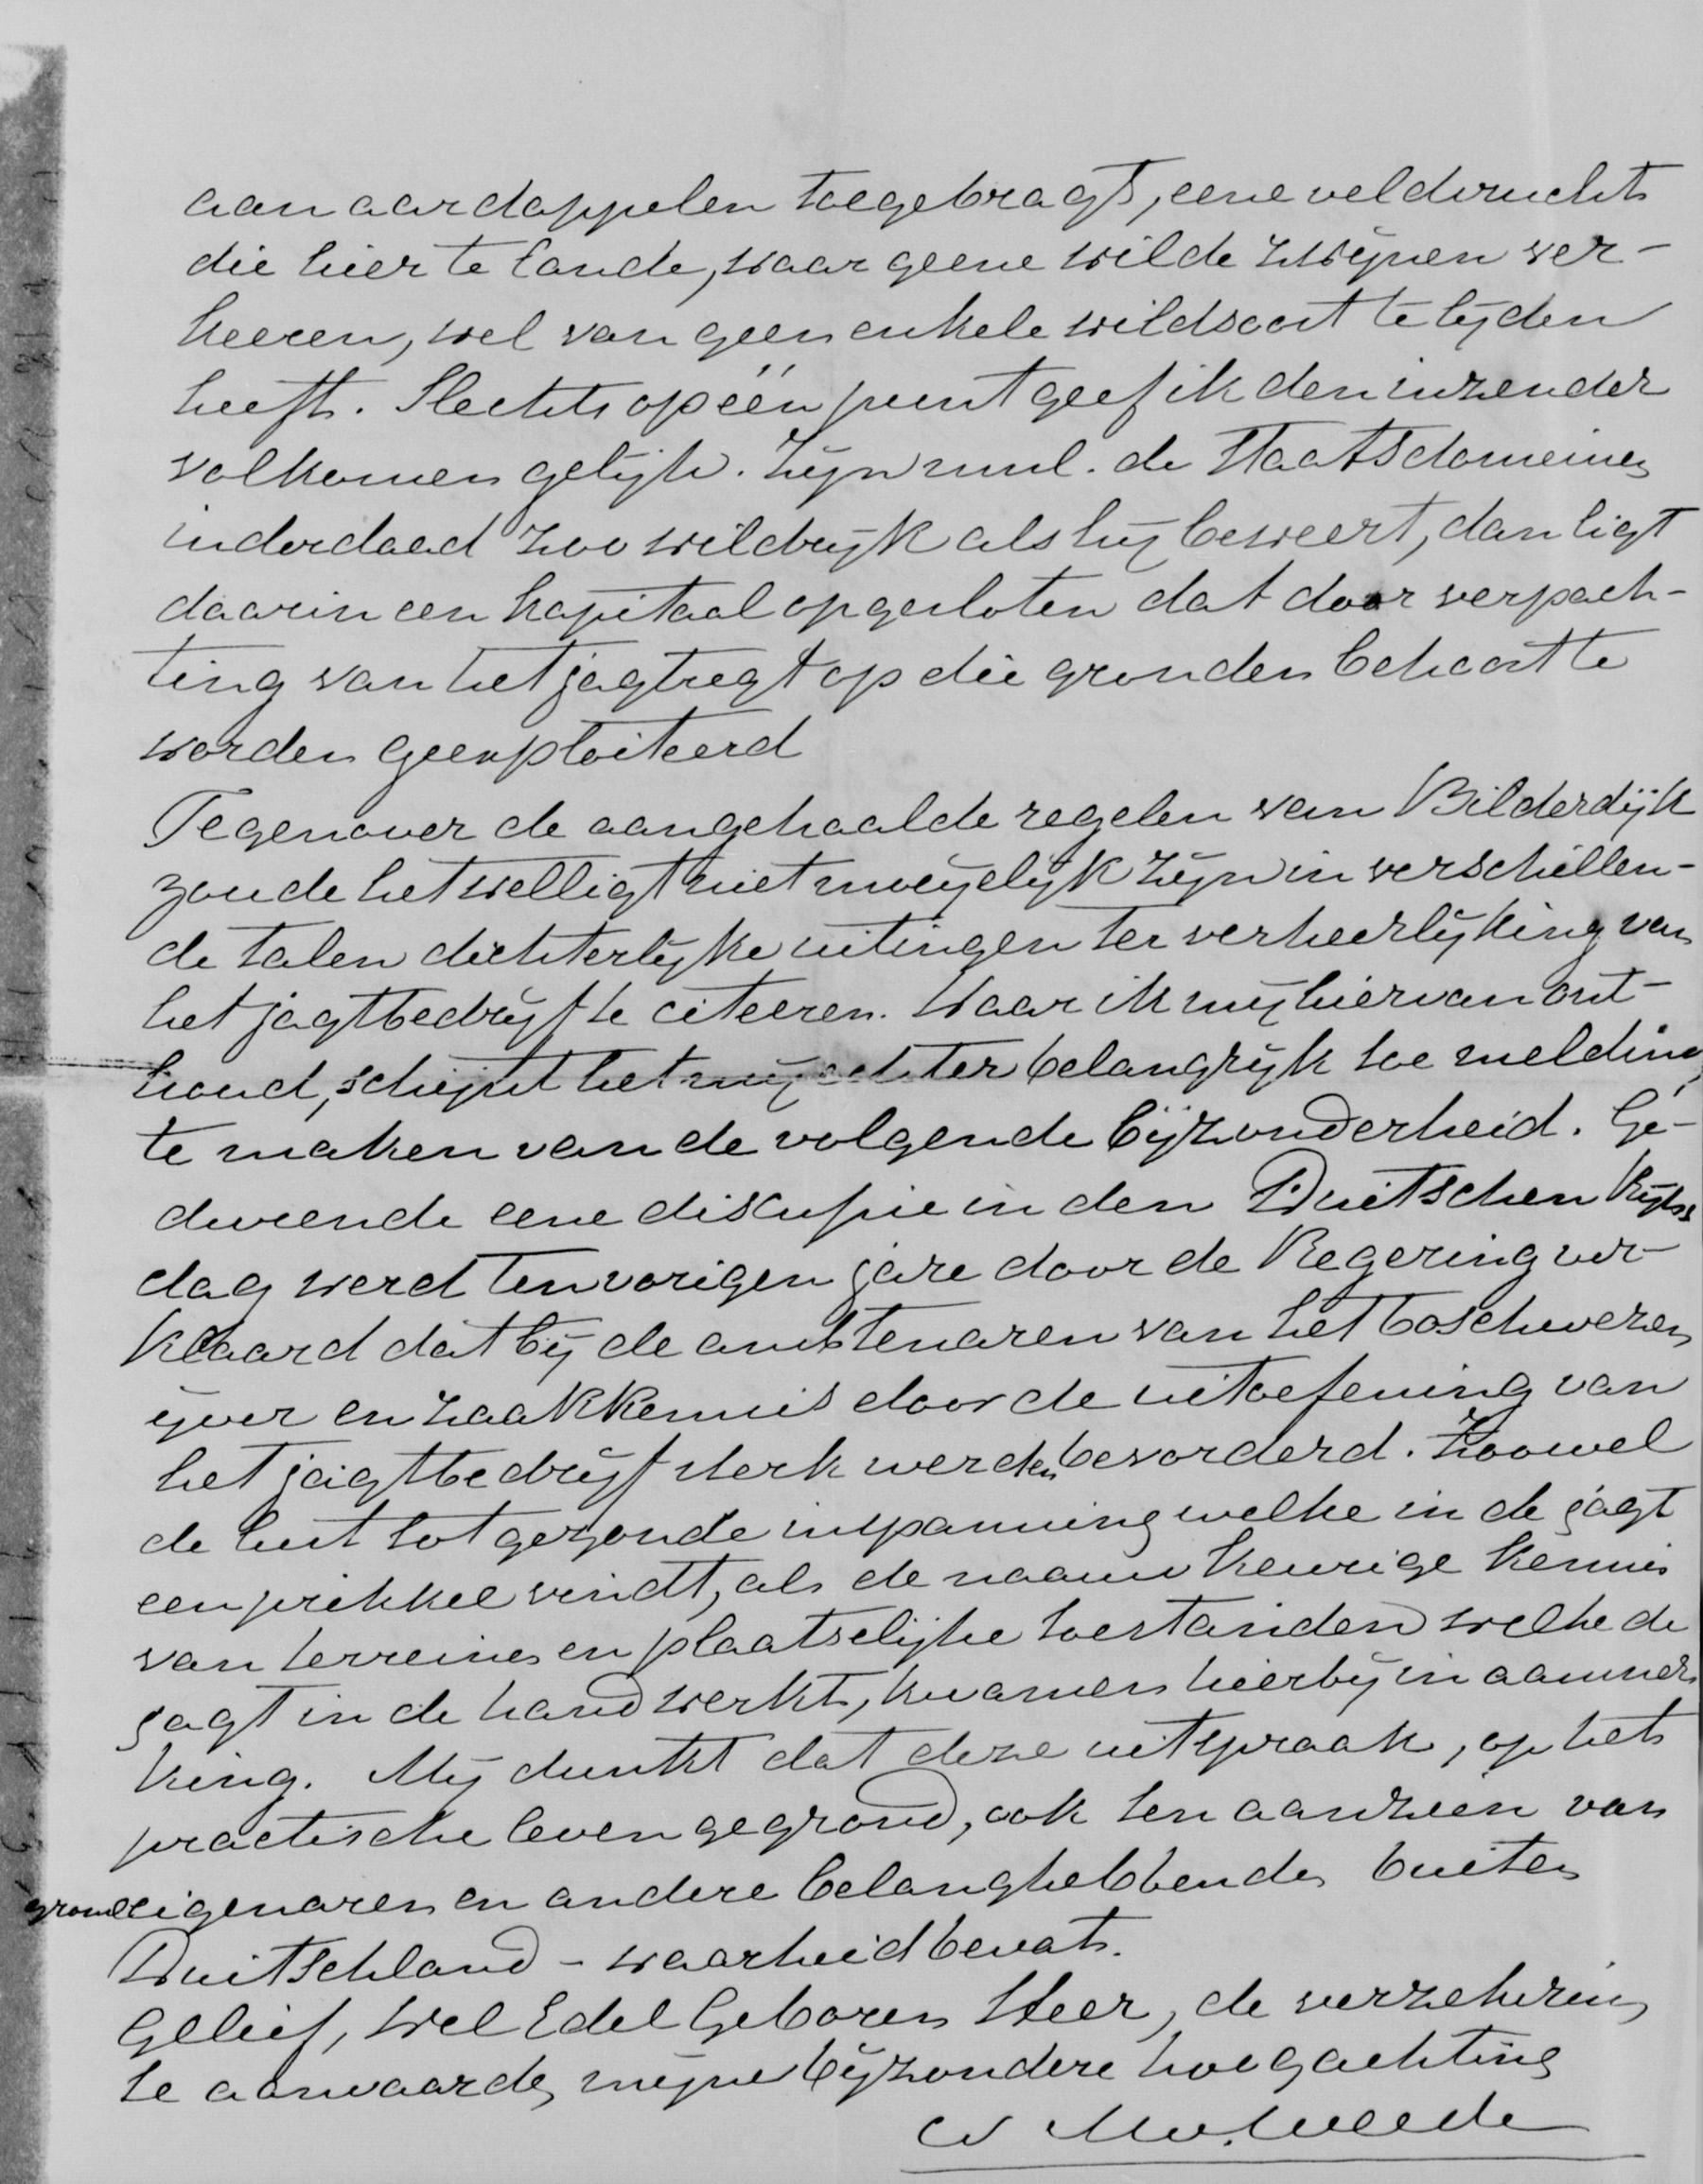 aan aardappelen toegebragt, eene veldvrucht
die hier te lande, waar geene wilde zwijnen ver-
keeren, wel van geen enkele wildsoort te lijden
heeft. Slechts op één punt geef ik den inzender
volkomen gelijk. Zijn nml. de Staatsdomeinen
inderdaad zoo wildrijk als hij beweert, dan ligt
daarin een kapitaal opgesloten dat door verpach-
ting van het jagtregt op die gronden behoort te
worden geexploiteerd
Tegenover de aangehaalde regelen van Bilderdijk
zoude het welligt niet moeyelijk zijn in verschillen-
de talen dichterlijke uitingen ter verheerlijking van
het jagtbedrijf te citeeren. Waar ik mij hiervan ont-
houd, schijnt het mij echter belangrijk toe melding
te maken van de volgende bijzonderheid. Ge-
durende eene diskussie in den Duitschen Rijks
dag werd ten vorigen jare door de Regering ver-
klaard dat bij de ambtenaren van het boschwezen
ijver en zaakkennis door de uitoefening van
het jagtbedrijf sterk werden bevorderd. Zoowel
de lust tot gezonde inspanning welke in de jagt
een prikkel vindt, als de naauwkeurige kennis
van terreinen en plaatselijke toestanden welke de
jagt in de hand werkt, kwamen hierbij in aanmer
king. Mij dunkt dat deze uitspraak, op het
practische leven gegrond, ook ten aanzien van
grondeigenaren en andere belanghebbenden buiten
Duitschland – waarheid bevat.
Gelief, Wel Edel Geboren Heer, de verzekering
te aanvaarden mijner bijzondere hoogachting